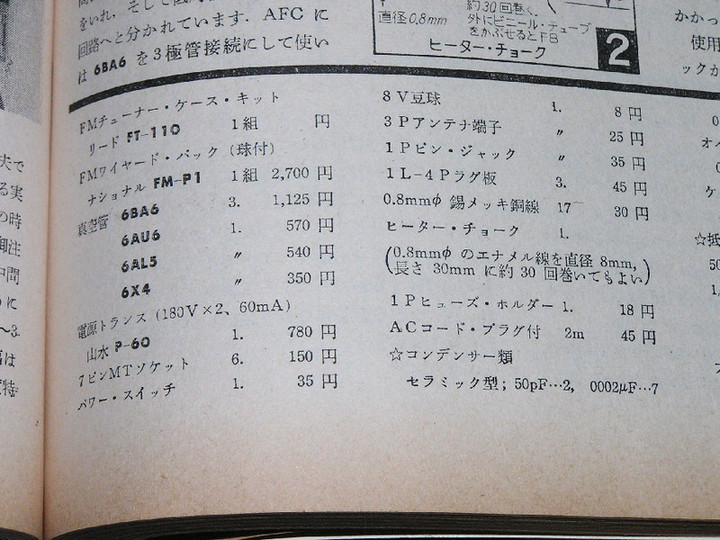 をいれ、そして
回路へと分かれています．AFC に
は 6BA6 を3極管接続にして使い
約30回巻く、
直径0.8mm 外にビニール・チューブ
をかぶせるとFB
ヒーター・チョーク
2
かかっ
使用
ックが
FMチューナー・ケース・キット
リード FT-110 1組 円
FMワイヤード・パック (球付)
ナショナル FM-P1 1組 2,700 円
真空管 6BA6 3. 1,125 円
6AU6 1. 570 円
6AL5 〃 540 円
6X4 〃 350 円
電源トランス (180V×2、60mA)
山水 P-60 1. 780 円
7ピンMTソケット 6. 150 円
パワー・スイッチ 1. 35 円
8V豆球 1. 8 円
3Pアンテナ端子 〃 25 円
1Pピン・ジャック 〃 35 円
1L-4Pラグ板 3. 45 円
0.8mmφ 錫メッキ銅線 17 30 円
ヒーター・チョーク 1.
(0.8mmφ のエナメル線を直径 8mm,
長さ 30mm に約 30 回巻いてもよい)
1Pヒューズ・ホルダー 1. 18 円
ACコード・プラグ付 2m 45 円
☆コンデンサー類
セラミック型；50pF…2, 0002μF…7
夫で
る実
の時
御注
中間
に
～3
は
特
オイ
ケ
☆抵
50